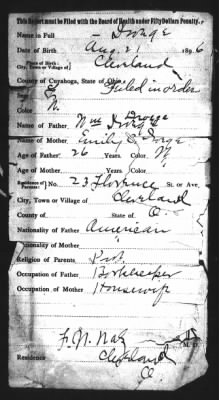 This Report must be Filed with the Board of Health under Fifty Dollars Penalty.
Name in Full
Date of Birth Aug. 21 1896
Place of Birth
City, Town or Village of Cleveland
County of Cuyahoga, State of Ohio. Filed in order
Sex
Color W.
Name of Father Wm
Name of Mother Emily
Age of Father 26 Years. Color W
Age of Mother Years.
Residence of Parents: No. 23 Florence St. or Ave.
City, Town or Village of Cleveland
County of State of O.
Nationality of Father American
Nationality of Mother
Religion of Parents Prot
Occupation of Father Bookkeeper
Occupation of Mother Housewife
M. D.
Residence Cleveland
O